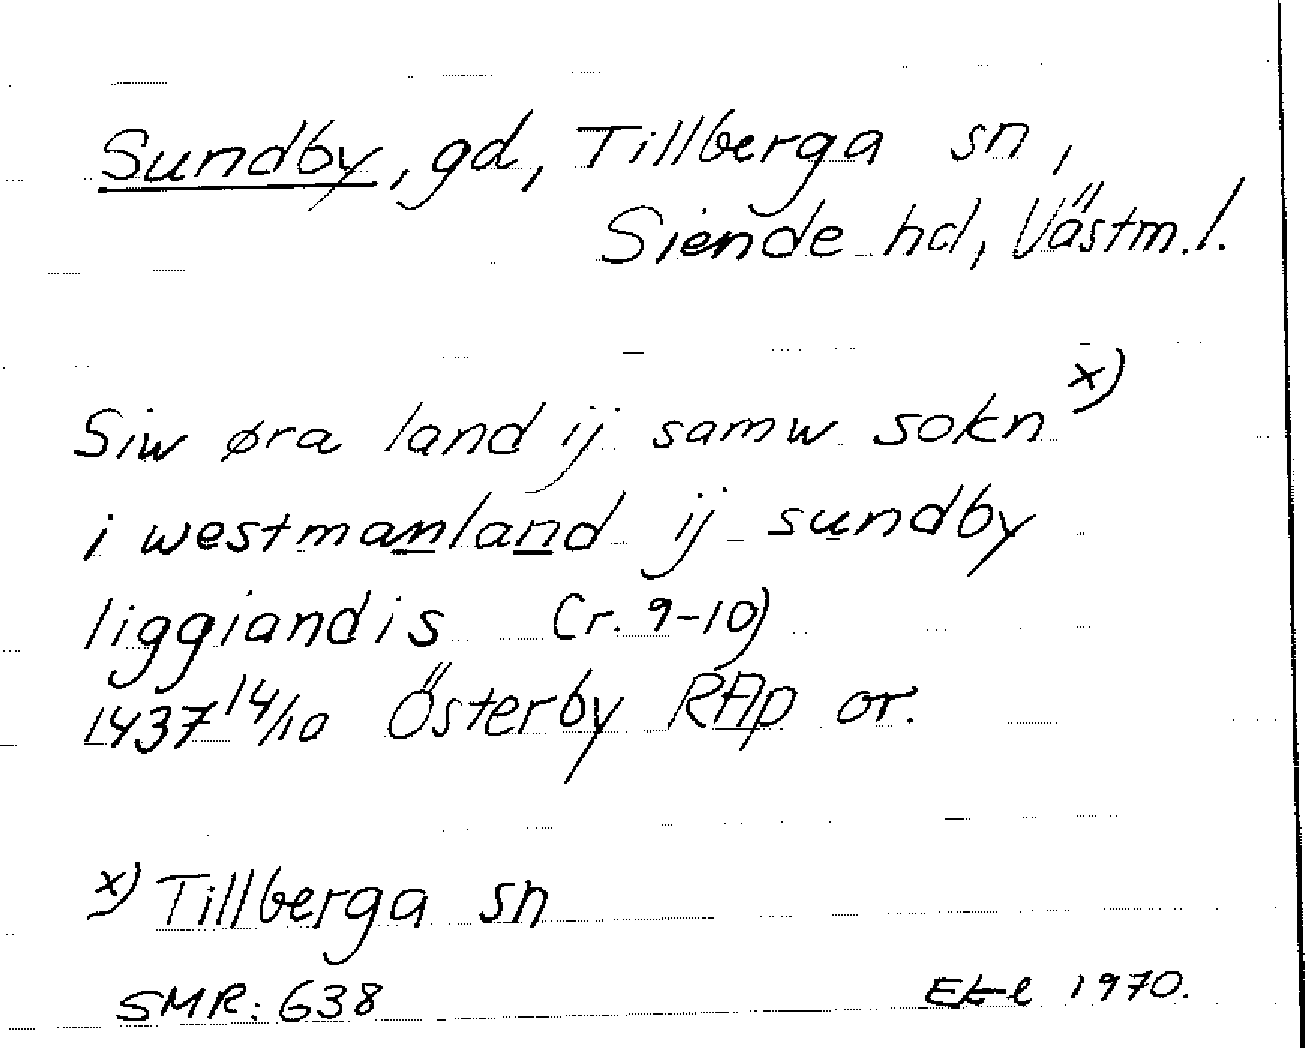 Sundby, gd, Tillberga sn,
Siende hd, Västm. l.
Siw øra land ij samw sokn x)
i westmanland ij sundby
liggiandis (r. 9-10)
1437 14/10 Österby RAp or.
x) Tillberga sn
SMR: 638
1970.